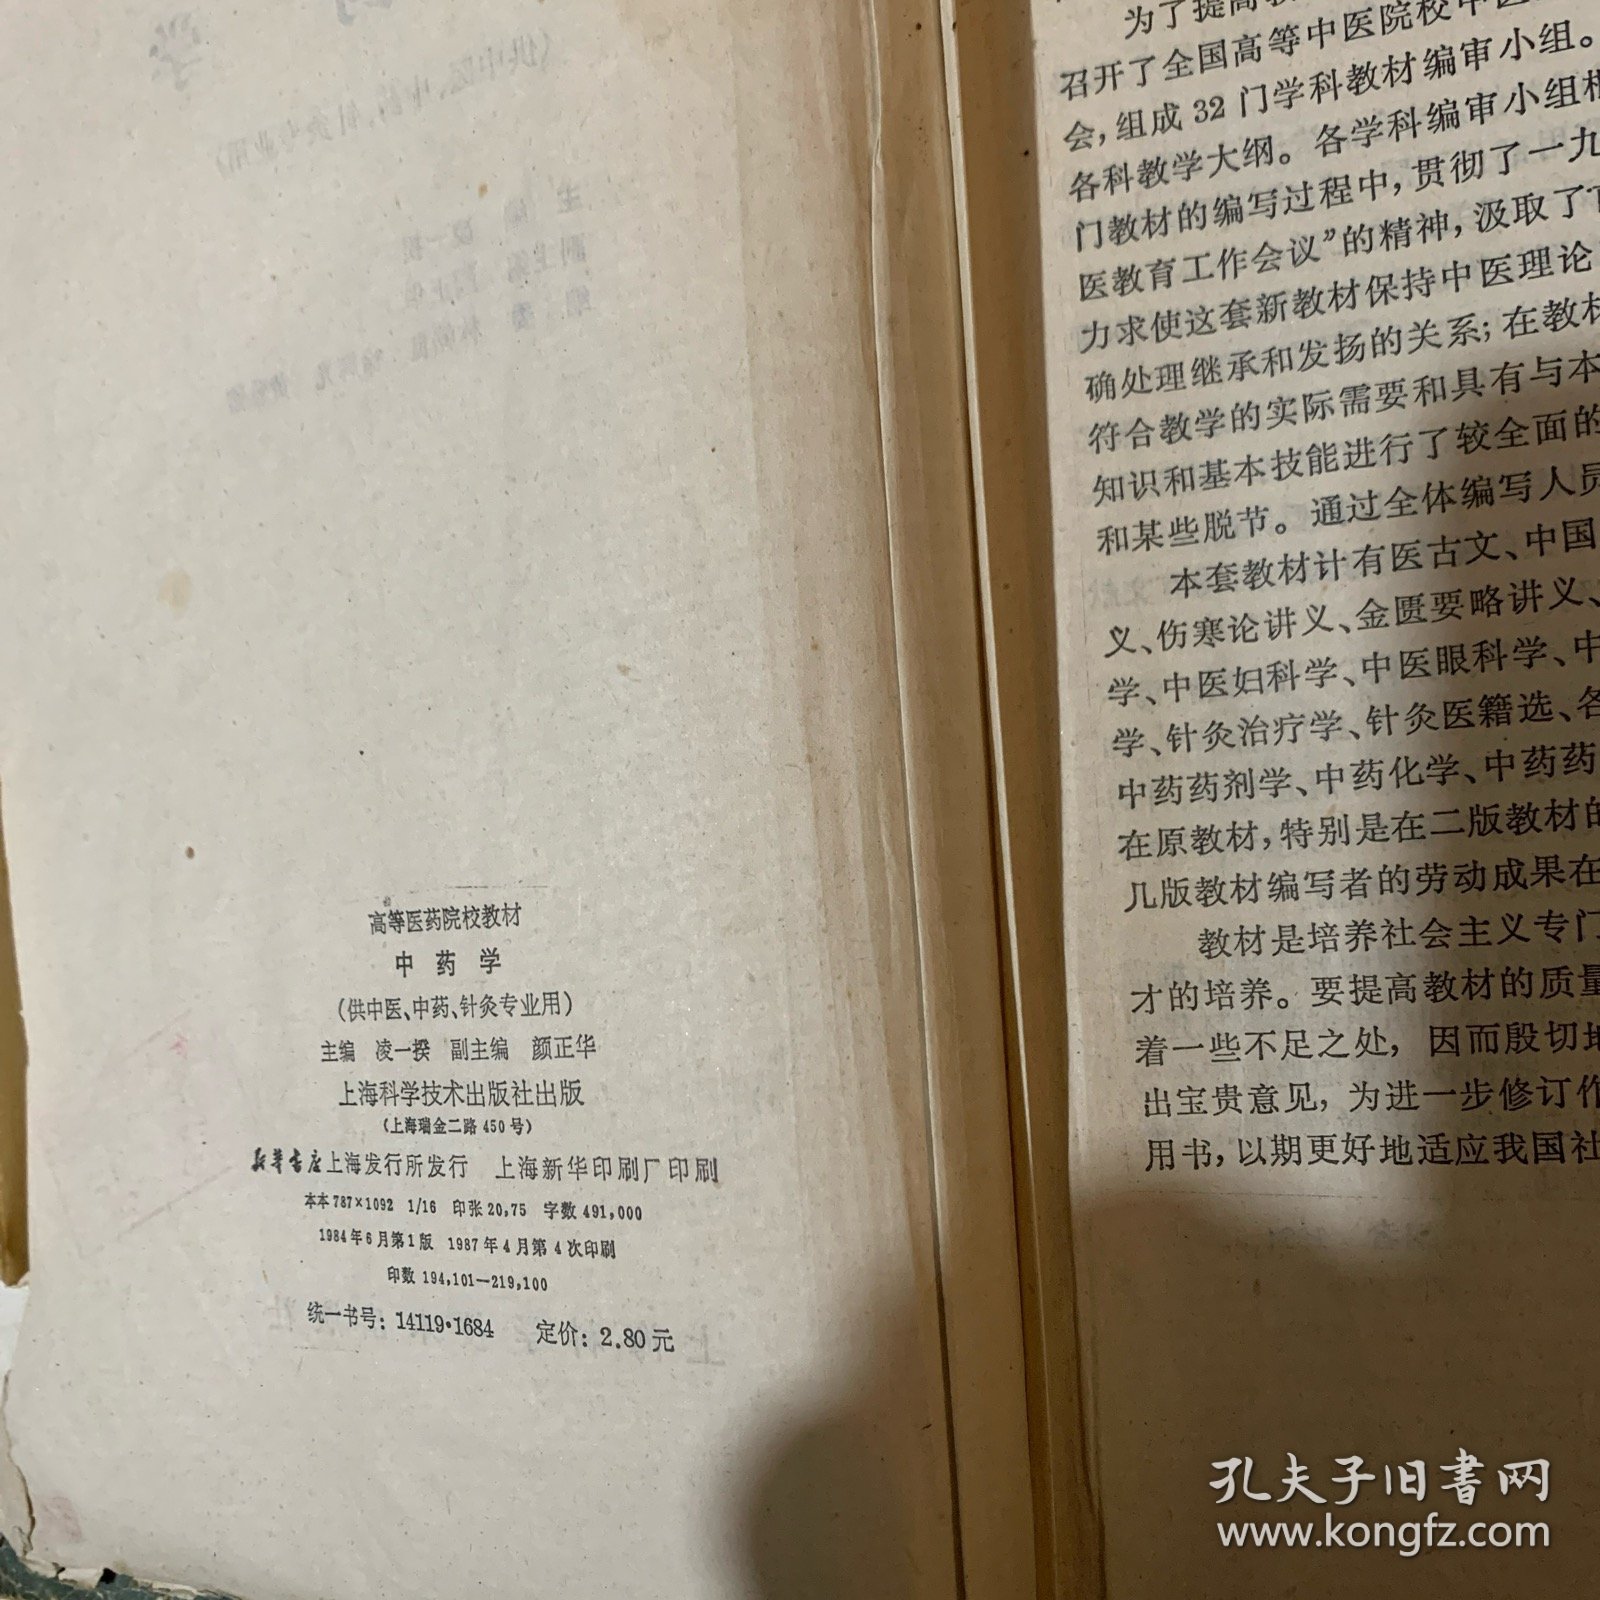 高等医药院校教材
中药学
(供中医、中药、针灸专业用)
主编 凌一揆 副主编 颜正华
上海科学技术出版社出版
(上海瑞金二路 450 号)
新华书店上海发行所发行 上海新华印刷厂印刷
本本 787×1092 1/16 印张 20,75 字数 491,000
1984 年 6 月第 1 版 1987 年 4 月第 4 次印刷
印数 194,101—219,100
统一书号: 14119·1684 定价: 2.80 元
为了提高教
召开了全国高等中医院校中医
会,组成 32 门学科教材编审小组。
各科教学大纲。各学科编审小组根
门教材的编写过程中,贯彻了一九
医教育工作会议”的精神,汲取了
力求使这套新教材保持中医理论
确处理继承和发扬的关系;在教材
符合教学的实际需要和具有与本
知识和基本技能进行了较全面的
和某些脱节。通过全体编写人员
本套教材计有医古文、中国
义、伤寒论讲义、金匮要略讲义、
学、中医妇科学、中医眼科学、中
学、针灸治疗学、针灸医籍选、各
中药药剂学、中药化学、中药药
在原教材,特别是在二版教材的
几版教材编写者的劳动成果在
教材是培养社会主义专门
才的培养。要提高教材的质量
着一些不足之处,因而殷切地
出宝贵意见,为进一步修订作
用书,以期更好地适应我国社
孔夫子旧书网
www.kongfz.com